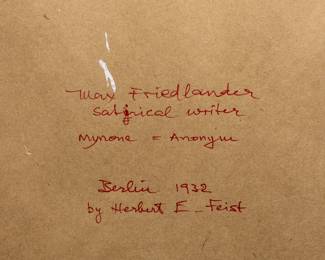 Max Friedlander
satyrical writer
Mynone = Anonym
Berlin 1932
by Herbert E. Feist